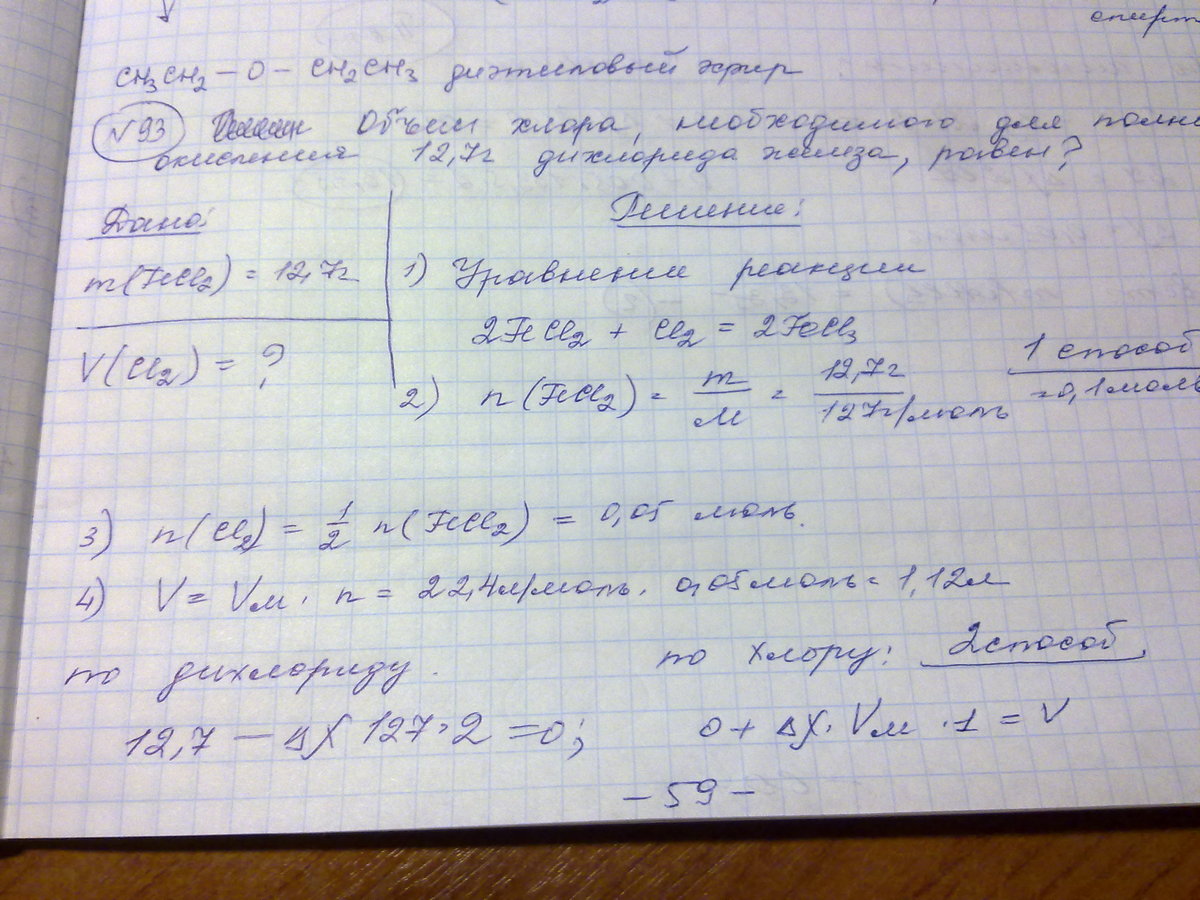 спирт
CH₃CH₂ – O – CH₂CH₃ диэтиловый эфир
№93 Объем хлора, необходимого для полно
окисления 12,7г дихлорида железа, равен?
Дано:
Решение:
m(FeCl₂) = 12,7г
1) Уравнение реакции
2FeCl₂ + Cl₂ = 2FeCl₃
V(Cl₂) = ?
1 способ
2) n(FeCl₂) = m/M = 12,7г/127г/моль = 0,1моль
3) n(Cl₂) = 1/2 n(FeCl₂) = 0,05 моль.
4) V = Vм · n = 22,4л/моль · 0,05моль = 1,12л
по дихлориду. по хлору: 2способ
12,7 – ΔX 127·2 = 0; 0 + ΔX · Vм · 1 = V
– 59 –